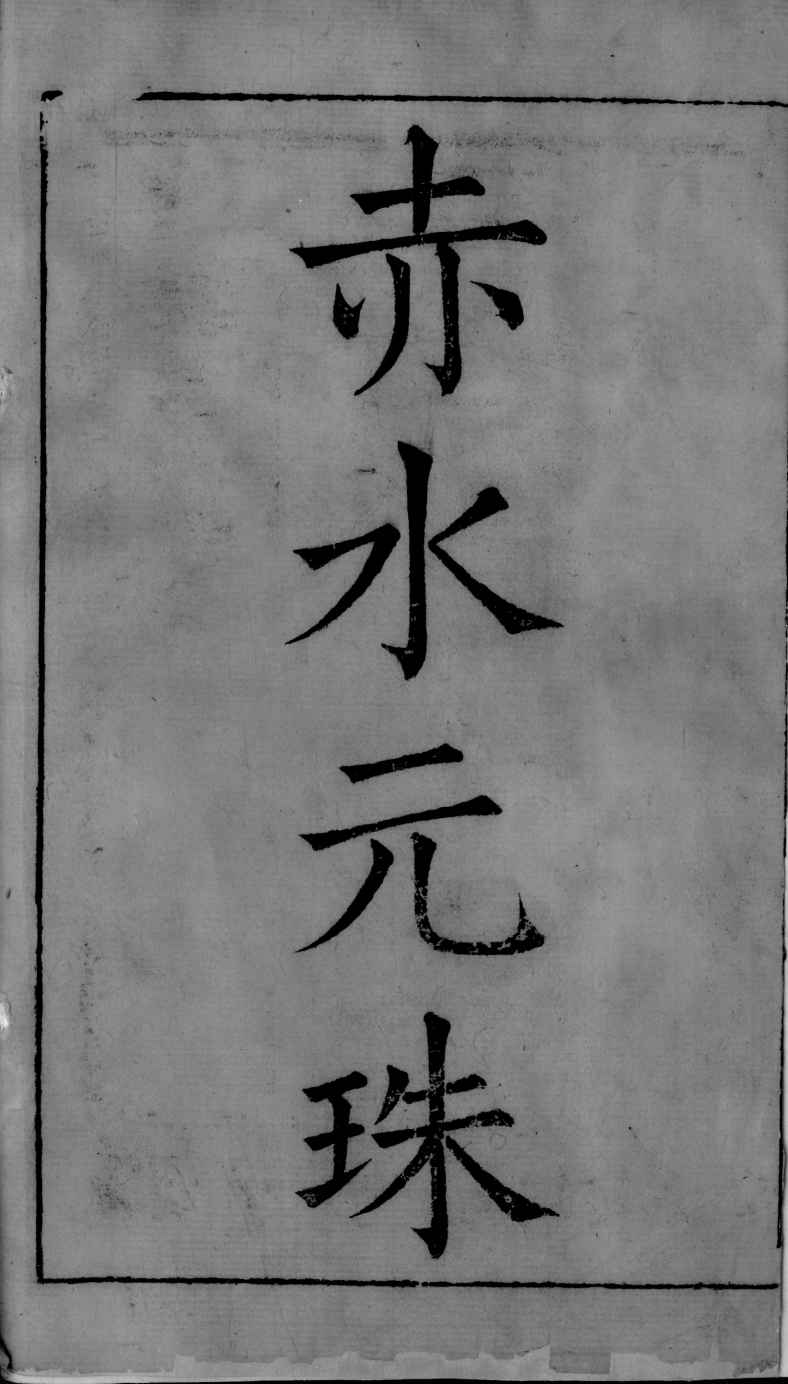 赤水元珠